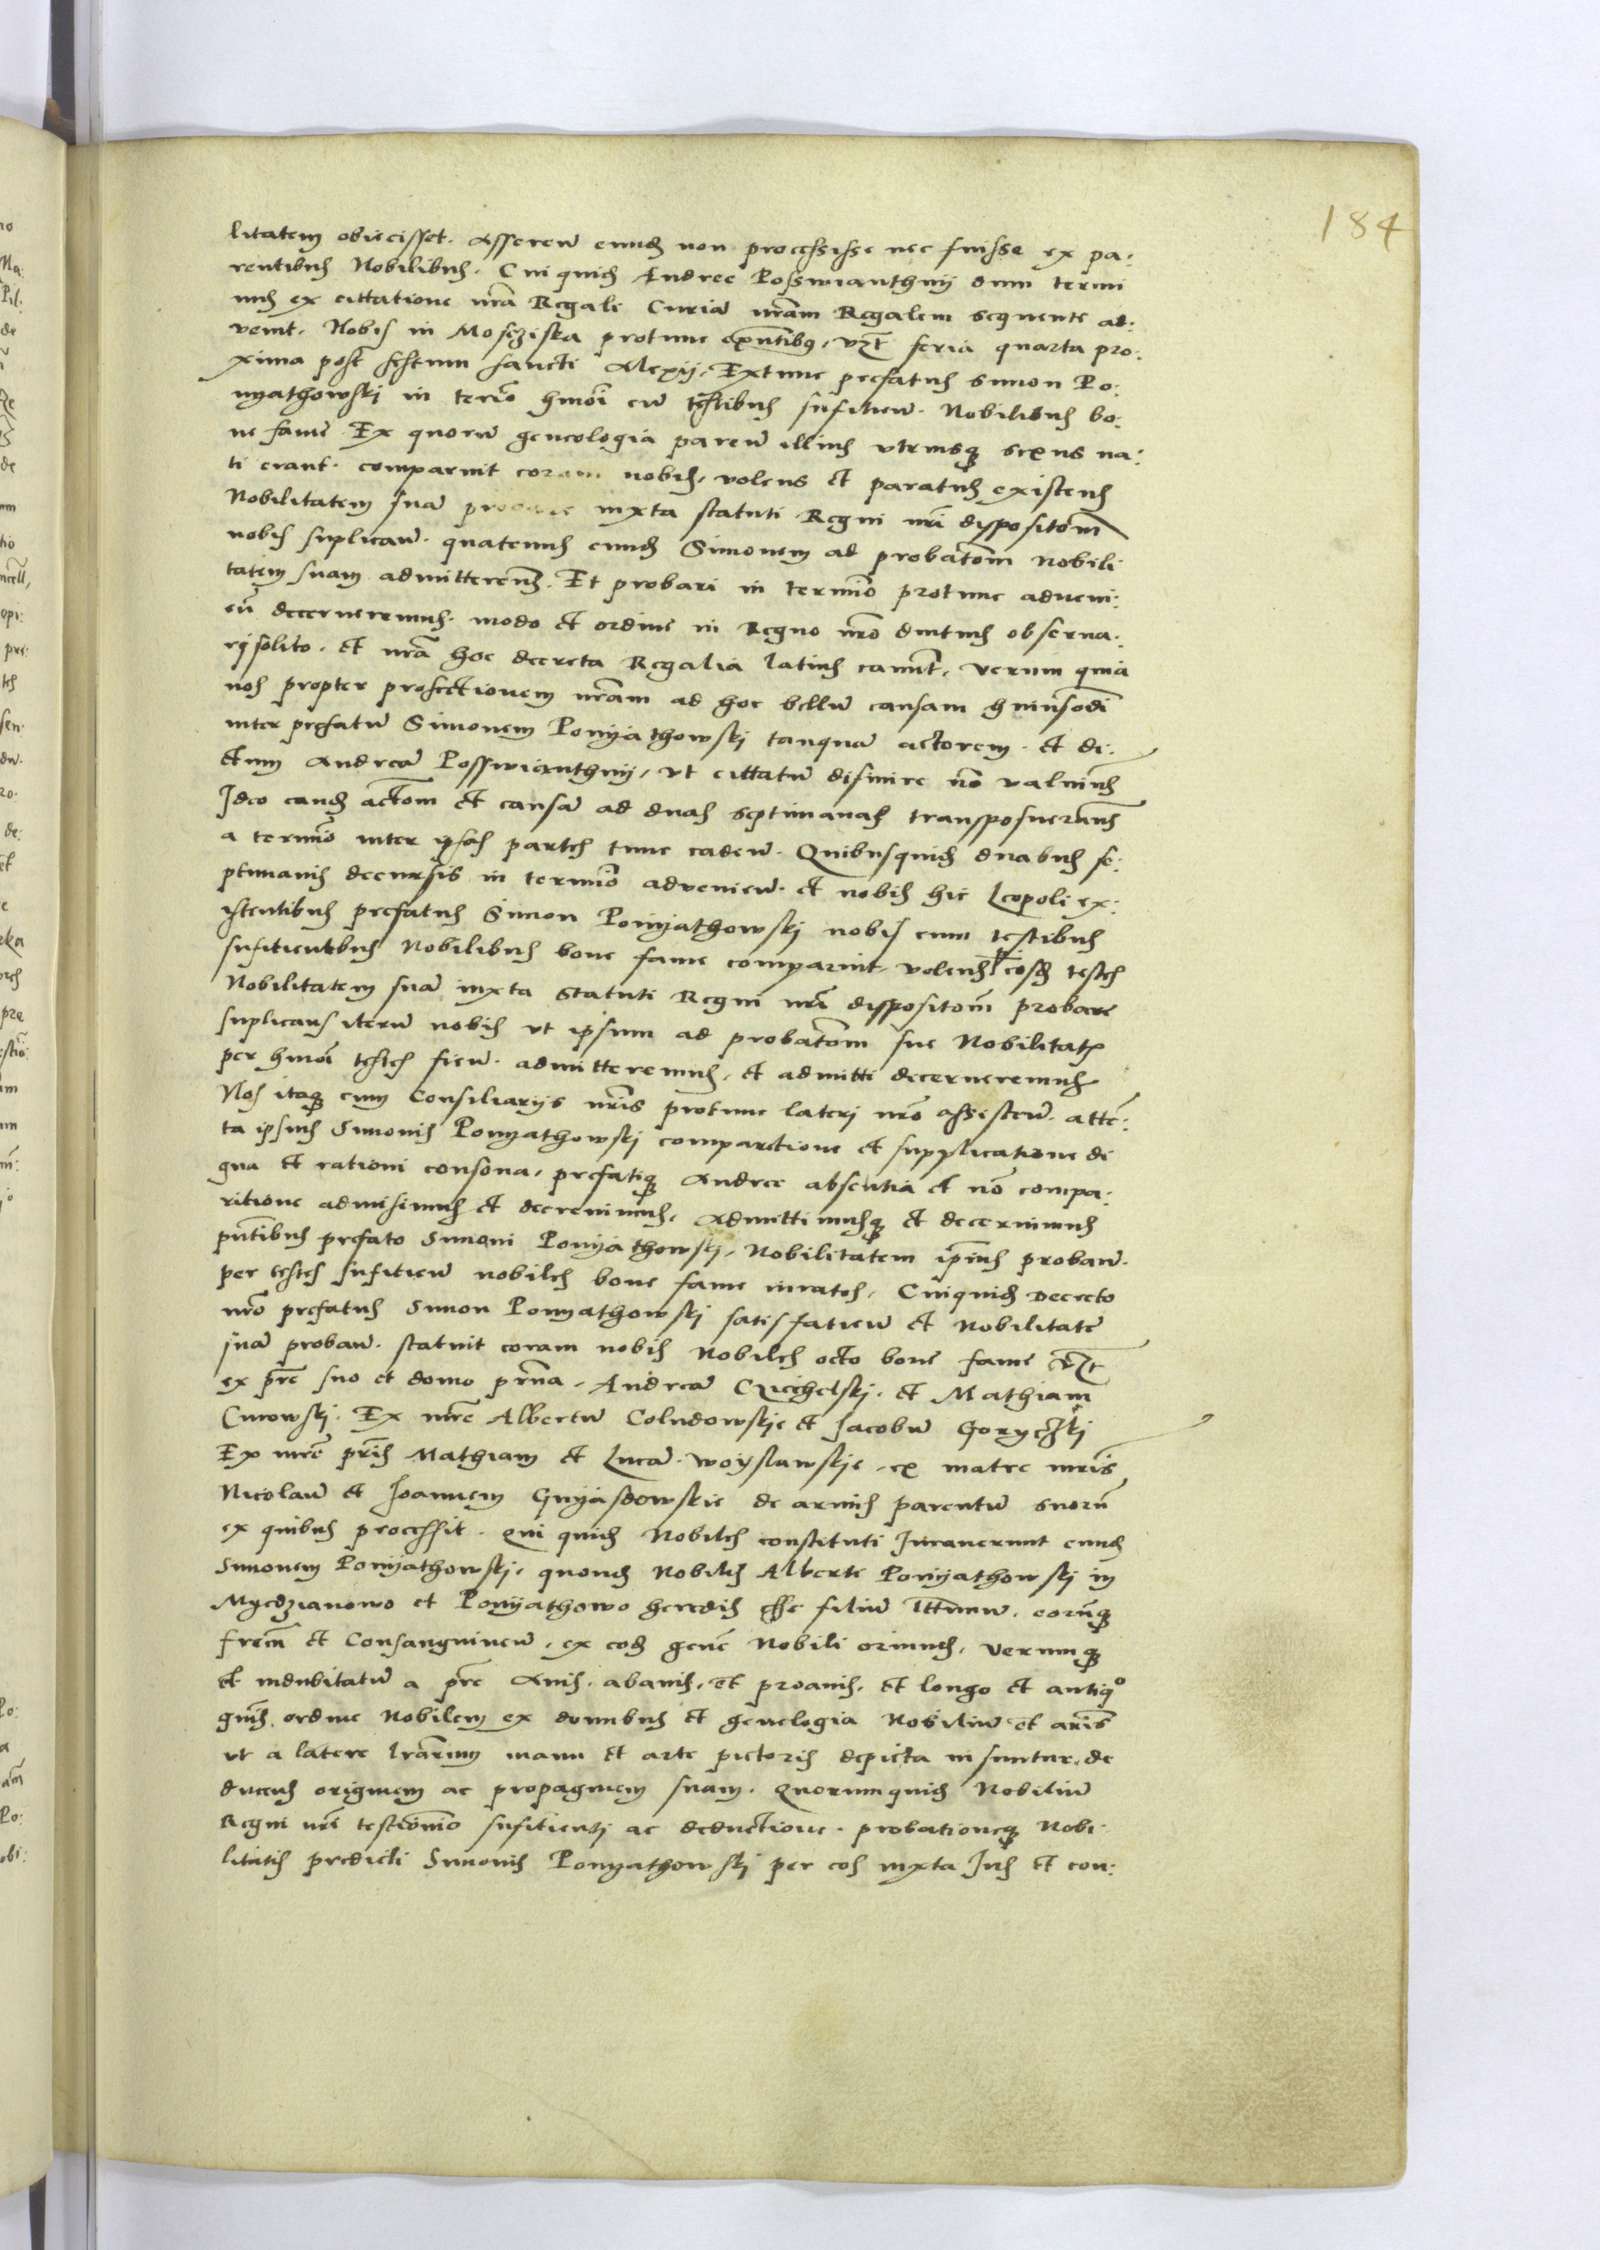 184
litatem obiecisset. Asseren̄ eund̄ non processisse nec fuisse ex pa:
rentibus Nobilibus. Cui quid̄ Andree Posswianthnij dum termi
nus ex cittatione nrā Regali Curiam nrām Regalem sequente ad:
venit. Nobis in Mosczisska protunc exn̄tibus, vzt feria quarta pro:
xima post festum sancti Alexij. Extunc prefatus Simon Po:
nyathowski in termīo hmōi cū testibus sufitien̄. Nobilibus bo:
ne fame Ex quorū geneologia paren̄ illius utriusq₃ sexus na:
ti erant. comparuit coram nobis, volens et paratus existens
Nobilitatem suā probare iuxta statuti Regni nrī disspositōm
nobis suplican̄. quatenus eund̄ Simonem ad probatōm Nobili
tatem suam admitterem̄. Et probari in termīo protunc adveni:
en̄ decerneremus. modo et ordine in Regno nrō diutius observa:
rj solito. et nrā hoc decreta Regalia latius canūt, verum quia
nos propter profectionem nrām ad hoc bellū causam huiusōdi
inter prefatū Simonem Ponyathowskj tanquā actorem. et di:
ctum Andreā Posswianthnij, ut cittatū difinire nō valuim̄s
Ideo eand̄ actōm et causā ad duas septimanas transposuerām̄s
a termīo inter ipsas partes tunc caden̄. Quibusquid̄ duabus se:
ptimanis decursis in termīo advenien̄. et nobis hic Leopoli ex:
istentibus prefatus Simon Ponyathowskj nobis cum testibus
sufitientibus Nobilibus bone fame comparuit. volens p eosd̄ testes
Nobilitatem suā iuxta Statuti Regni nrī disspositōm probare
suplicans iterū nobis ut ipsum ad probatōm sue Nobilitatis
per hmōi testes fien̄. admitteremus, et admitti decerneremus
Nos itaq₃ cum Consiliarijs nrīs protunc laterj nrō assisten̄. attē:
ta ipsius Simonis Ponyathowskj comparetione et supplicatione di
gna et rationi consona, prefatiq₃ Andree absentia et nō compa:
ritione admisimus et decrevimus, Admittimusq₃ et decernimus
pn̄tibus prefato Simoni Ponyathowskj, Nobilitatem ipīus proban̄.
per testes sufitien̄ nobiles bone fame iuratos, Cuiquid̄ decreto
nrō prefatus Simon Ponyathowskj satisfatien̄ et Nobilitatē
suā proban̄. statuit coram nobis Nobiles octo bone fame vzt
ex prē suo et domo prn̄a, Andreā Czieċhelskj, et Mathiam
Cucowskj. Ex mrē Albertū Coludowskje et Jacobū Goryczskj
Ex mrē prīs Mathiam et Lucā. Woyslawskje, ex matre mrīs
Nicolaū et Joannem Gnyasdowskie de armis parentū suorū
ex quibus processit. Qui quid̄ Nobiles constituti Iuraverunt eund̄
Simonem Ponyathowskj, quond̄ Nobilis Alberti Ponyathowskj in
Myedzianowo et Ponyathowo heredis esse filiū lttimū. eorūq₃
frēm et Consanguineū, ex eod̄ genē Nobili oriundū, verumq₃
et indubitatū a prē Avis, abavis, et proavis, et longo et antiqº
gn̄is ordine Nobilem ex domibus et genelogia Nobiliū et armīs
ut a latere lrārum manu et arte pictoris depicta insuntur, de
ducens originem ac propaginem suam. Quorumquid̄ Nobiliū
Regni nrī testiōnio sufitientj ac deductione. probationeq₃ Nobi
litatis predicti Simonis Ponyathowskj per eos iuxta Jus et con: